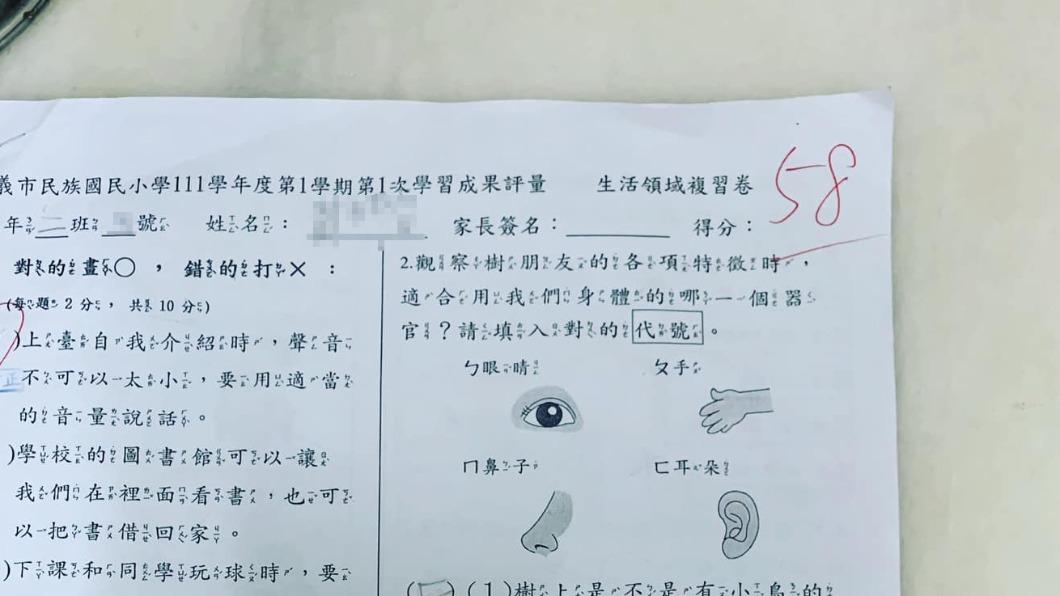 義市民族國民小學111學年度第1學期第1次學習成果評量 生活領域複習卷 58
年二班 號 姓名： 家長簽名： 得分：
對的畫○，錯的打×：
(每題2分，共10分)
)上臺自我介紹時，聲音
不可以太小，要用適當
的音量說話。
)學校的圖書館可以讓
我們在裡面看書，也可
以把書借回家。
)下課和同學玩球時，要
2.觀察樹朋友的各項特徵時，
適合用我們身體的哪一個器
官？請填入對的代號。
ㄅ眼睛 ㄆ手
ㄇ鼻子 ㄈ耳朵
( )(1)樹上是不是有小鳥的